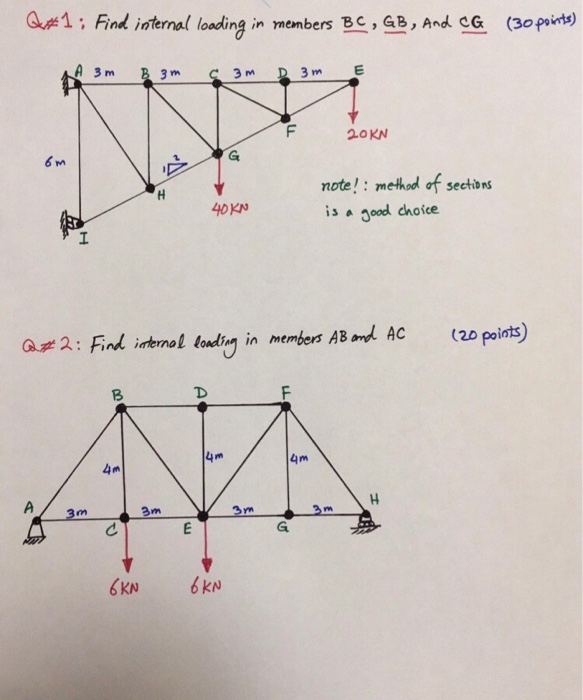 Q#1: Find internal loading in members BC, GB, And CG (30 points)
A 3m B 3m C 3m D 3m E
F
20KN
6m
G
1 2
H
note!: method of sections
is a good choice
40KN
I
Q#2: Find internal loading in members AB and AC (20 points)
B D F
4m 4m 4m
A 3m 3m 3m 3m H
C E G
6KN 6KN